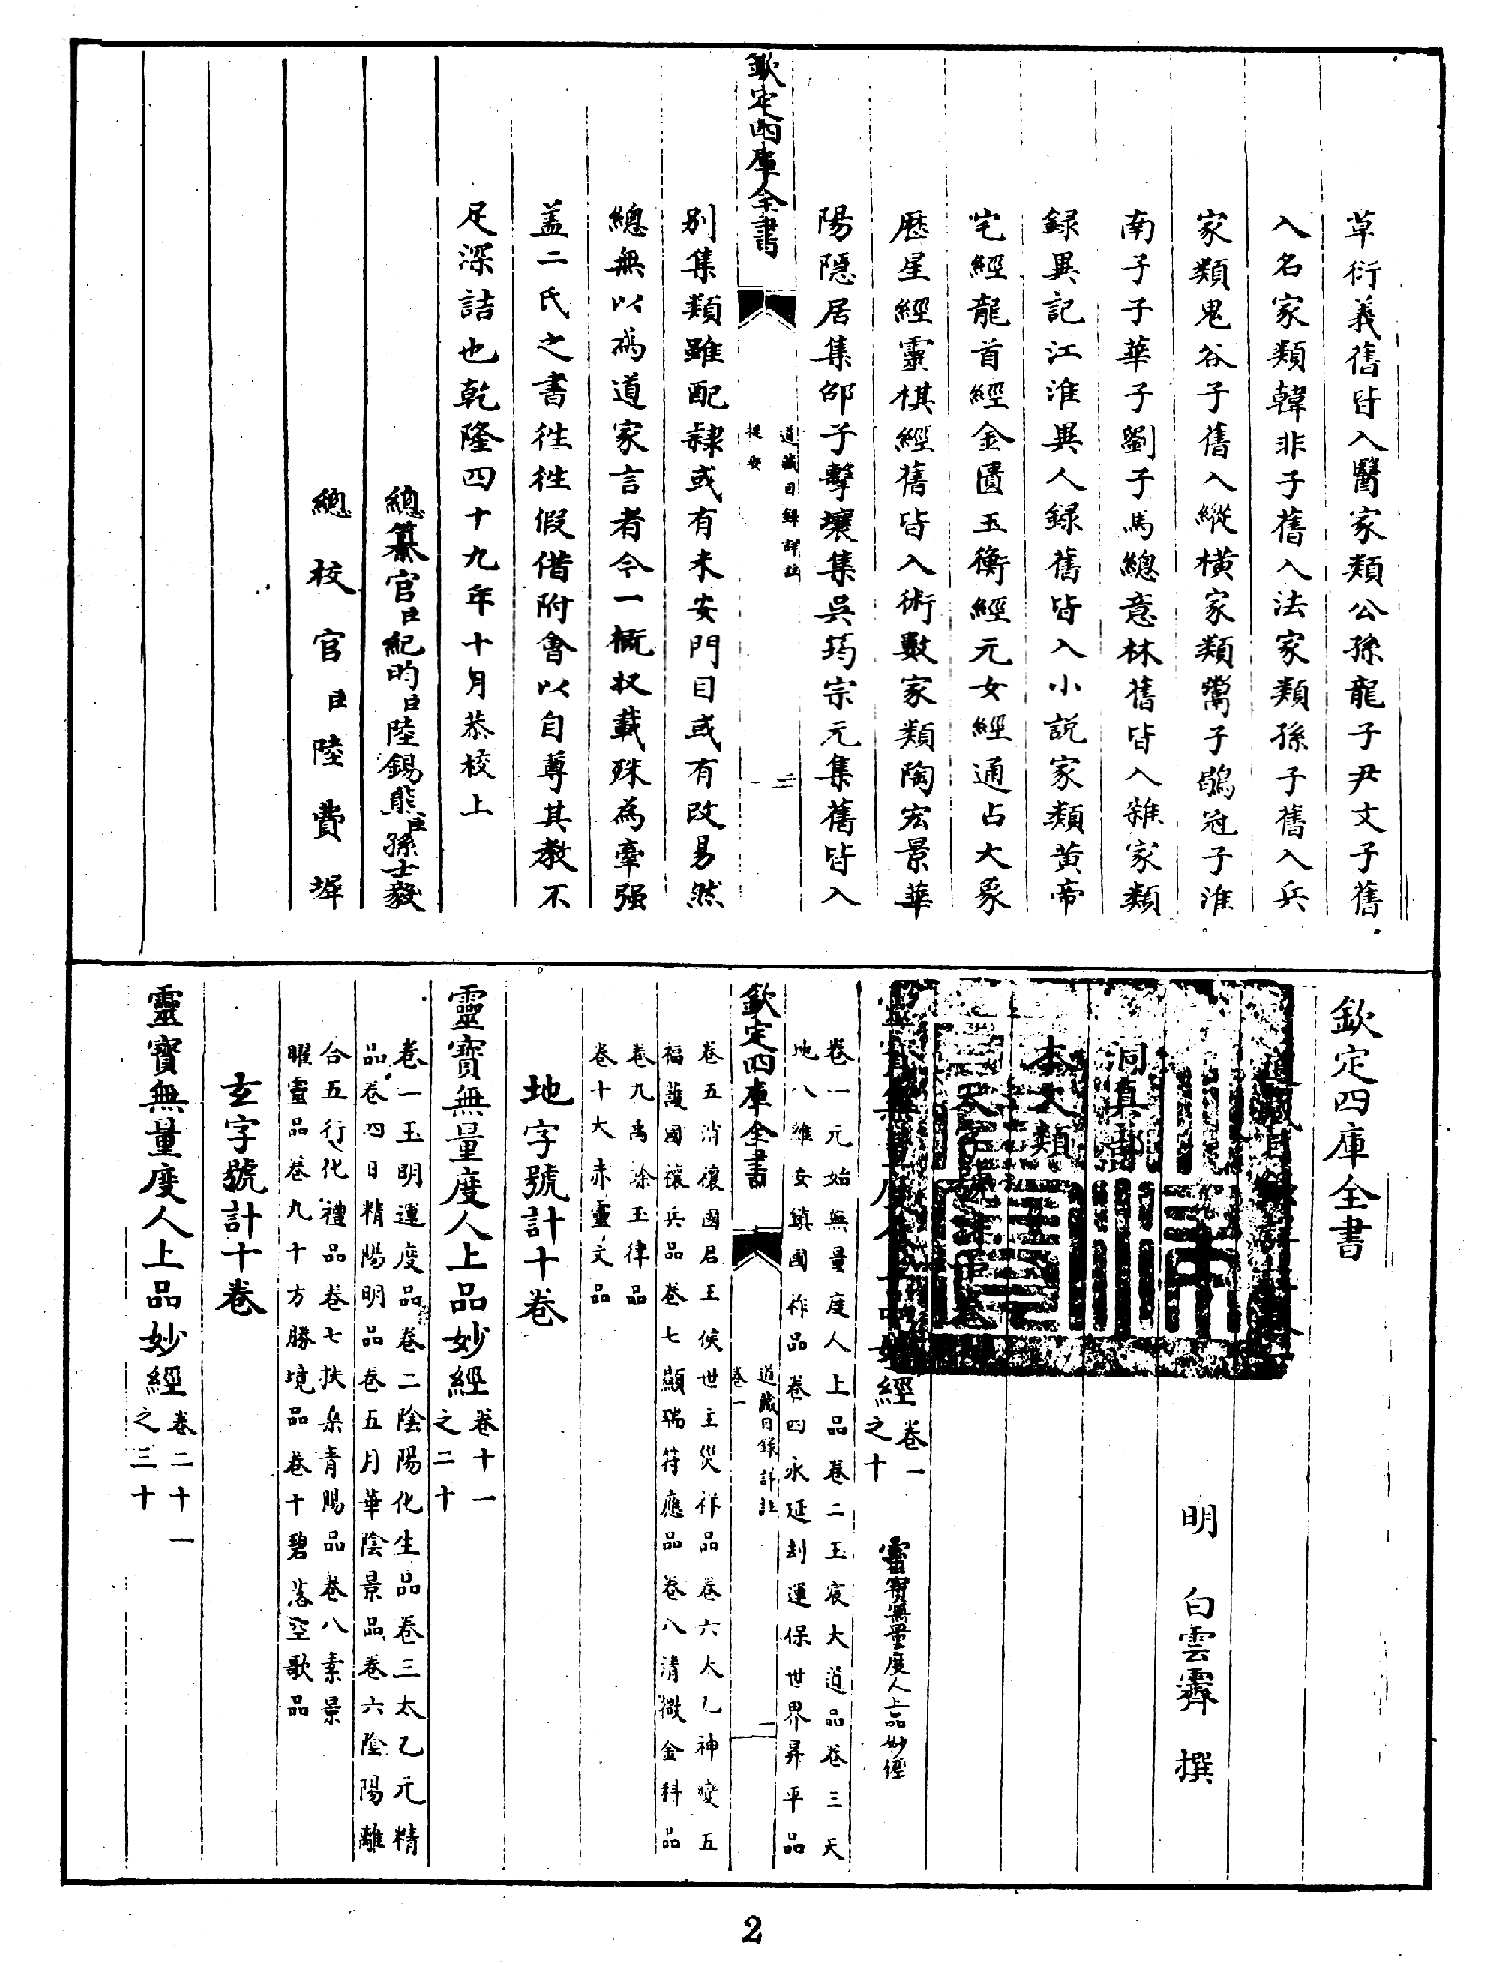 草衍義舊皆入醫家類公孫龍子尹文子舊
入名家類韓非子舊入法家類孫子舊入兵
家類鬼谷子舊入縱橫家類鬻子鶡冠子淮
南子子華子劉子馬總意林舊皆入雜家類
録異記江淮異人録舊皆入小説家類黄帝
宅經龍首經金匱玉衡經元女經通占大象
歴星經靈棋經舊皆入術數家類陶宏景華
陽隠居集邵子擊壤集吳筠宗元集舊皆入
欽定四庫全書
道藏目録詳註
提要
二
别集類雖配隷或有未安門目或有改易然
總無以為道家言者今一概收載殊為牽强
盖二氏之書往往假借附會以自尊其教不
足深詰也乾隆四十九年十月恭校上
總纂官臣紀昀臣陸錫熊臣孫士毅
總校官臣陸費墀
欽定四庫全書
道藏目録詳註卷一
明 白雲霽 撰
洞真部
本文類
天字號計十卷
靈寶無量度人上品妙經卷一之十 靈寶無量度人上品妙經
卷一元始無量度人上品卷二玉宸大道品卷三天
地八維安鎮國祚品卷四永延刼運保世界昇平品
欽定四庫全書
道藏目録詳註
卷一
一
卷五消禳國君王侯世主災祥品卷六大乙神變五
福護國禳兵品卷七顯瑞符應品卷八清微金科品
卷九禹餘玉律品
卷十大赤靈文品
地字號計十卷
靈寶無量度人上品妙經卷十一之二十
卷一玉明運度品卷二陰陽化生品卷三太乙元精
品卷四日精陽明品卷五月華陰景品卷六陰陽離
合五行化禮品卷七扶桑青腸品卷八素景
曜靈品卷九十方勝境品卷十碧落空歌品
玄字號計十卷
靈寶無量度人上品妙經卷二十一之三十
2